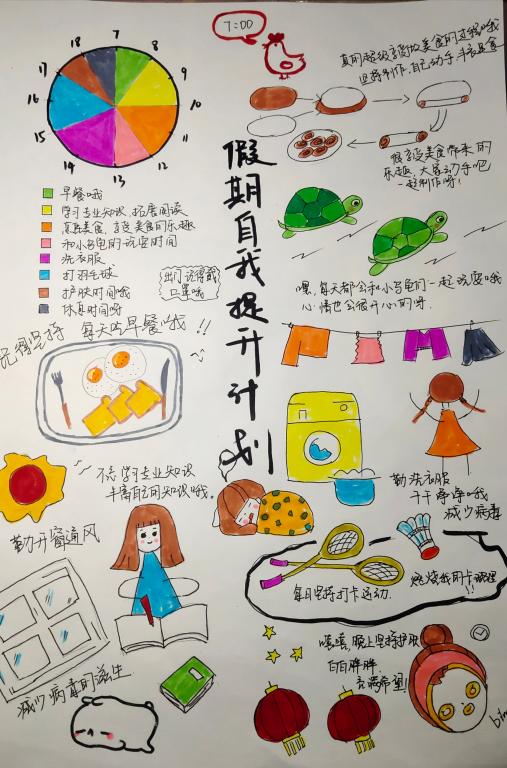 7:00
假期自我提升计划
18
7
8
9
10
11
12
13
14
15
16
17
早餐哦
学习专业知识,拓展阅读
真熟美食,享受美食的乐趣
和小乌龟们玩耍时间
洗衣服
打羽毛球
护肤时间哦
休息时间呀
出门记得戴
口罩哦
真的超级享受做美食的过程哦
坚持制作,自己动手丰衣足食
享受美食带来的
乐趣,大家动手吧
一起制作呀!
嘿,每天都会和小乌龟们一起玩耍哦
心情也会很开心的呀.
记得坚持
每天吃早餐哦!!
学习专业知识
丰富自己的知识哦.
勤开窗通风
减少病毒的滋生
勤洗衣服
干干净净哦
减少病毒
每日坚持打卡运动.
燃烧我的卡路里!!
嘻嘻,晚上坚持护肤
白白胖胖
充满希望!